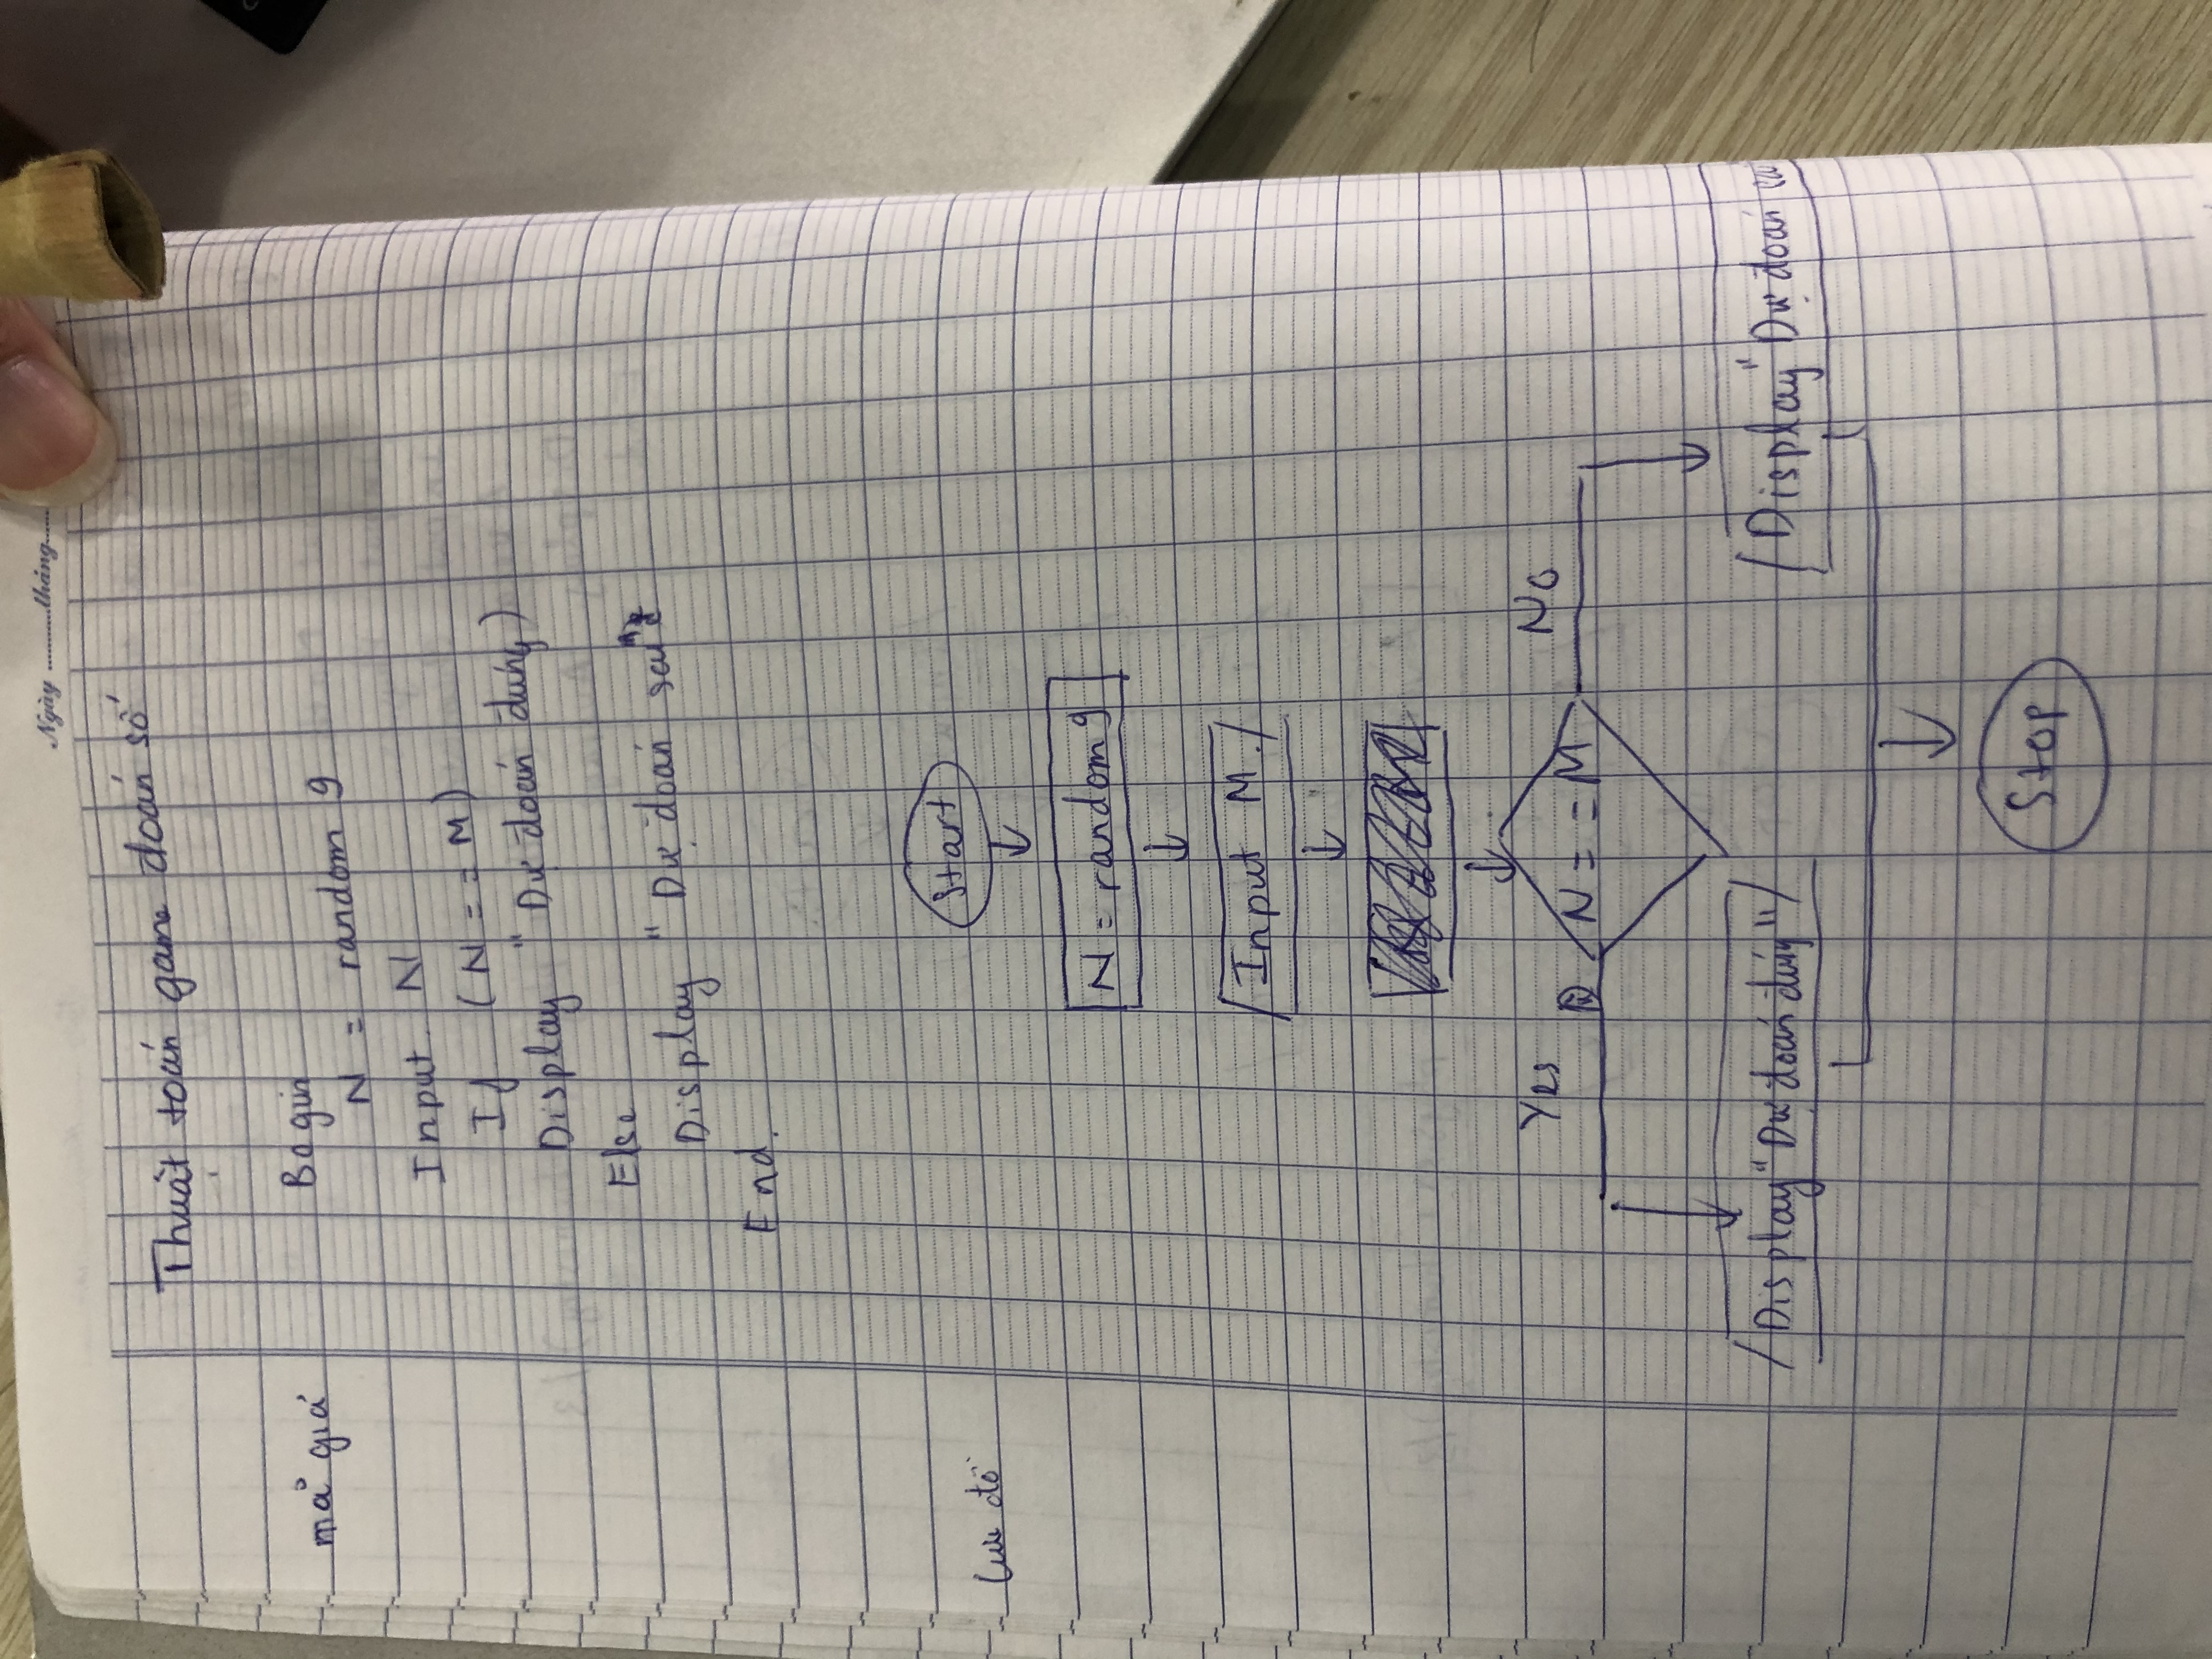 Ngày ...........tháng......
Thuật toán game đoán số
mã giả
Begin
N = random 9
Input N
If (N = = M)
Display " Dự đoán đúng)
Else
Display " Dự đoán sai"
End.
Lưu đồ
Start
N = random 9
Input M.
Yes
N = = M
No
Display "Dự đoán đúng"
Display "Dự đoán sai
Stop